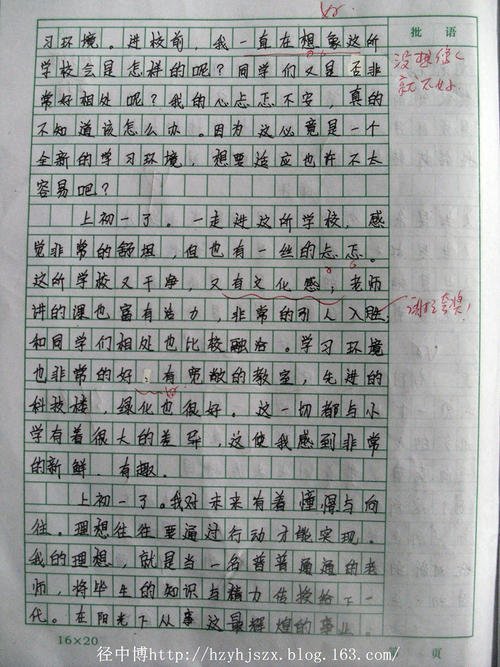 批 语
习环境。进校前，我一直在想象这所
学校会是怎样的呢？同学们又是否非
常好相处呢？我的心忐忑不安，真的
不知道该怎么办。因为这必竟是一个
全新的学习环境，想要适应也许不太
容易吧？
上初一了。一走进这所学校，感
觉非常的舒坦，但也有一丝的忐忑。
这所学校又干净，又有文化感；老师
讲的课也富有活力，非常的引人入胜，
和同学们相处也比较融洽。学习环境
也非常的好：有宽敞的教室，先进的
科技楼，绿化也很好。这一切都与小
学有着很大的差异，这使我感到非常
的新鲜、有趣。
上初一了。我对未来有着憧憬与向
往。理想往往要通过行动才能实现。
我的理想，就是当一名普普通通的老
师，将毕生的知识与精力传授给下一
代。在阳光下从事这最辉煌的事业。
没想像
就不好
谢谢夸奖！
16×20
页
径中博http://hzyhjszx.blog.163.com/